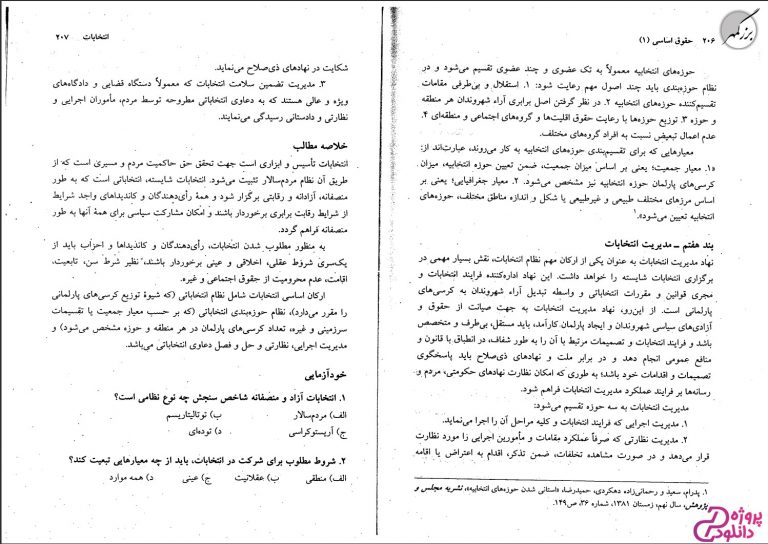 ۲۰۶ حقوق اساسی (۱)
حوزه‌های انتخابیه معمولاً به تک عضوی و چند عضوی تقسیم می‌شود و در
نظام حوزه‌بندی باید چند اصول مهم رعایت شود: ۱. استقلال و بی‌طرفی مقامات
تقسیم‌کننده حوزه‌های انتخابیه ۲. در نظر گرفتن اصل برابری آراء شهروندان هر منطقه
و حوزه ۳. توزیع حوزه‌ها با رعایت حقوق اقلیت‌ها و گروه‌های اجتماعی و منطقه‌ای ۴.
عدم اعمال تبعیض نسبت به افراد گروه‌های مختلف.
معیارهایی که برای تقسیم‌بندی حوزه‌های انتخابیه به کار می‌روند، عبارت‌اند از:
«۱. معیار جمعیت؛ یعنی بر اساس میزان جمعیت، ضمن تعیین حوزه انتخابیه، میزان
کرسی‌های پارلمان حوزه انتخابیه نیز مشخص می‌شود. ۲. معیار جغرافیایی؛ یعنی بر
اساس مرزهای مختلف طبیعی و غیرطبیعی یا شکل و اندازه مناطق مختلف، حوزه‌های
انتخابیه تعیین می‌شود».۱
بند هفتم ـ مدیریت انتخابات
نهاد مدیریت انتخابات به عنوان یکی از ارکان مهم نظام انتخابات، نقش بسیار مهمی در
برگزاری انتخابات شایسته را خواهد داشت. این نهاد اداره‌کننده فرایند انتخابات و
مجری قوانین و مقررات انتخاباتی و واسطه تبدیل آراء شهروندان به کرسی‌های
پارلمانی است. از این‌رو، نهاد مدیریت انتخابات به جهت صیانت از حقوق و
آزادی‌های سیاسی شهروندان و ایجاد پارلمان کارآمد، باید مستقل، بی‌طرف و متخصص
باشد و فرایند انتخابات و تصمیمات مرتبط با آن را به طور شفاف، در انطباق با قانون و
منافع عمومی انجام دهد و در برابر ملت و نهادهای ذی‌صلاح باید پاسخگوی
تصمیمات و اقدامات خود باشد؛ به طوری که امکان نظارت نهادهای حکومتی، مردم و
رسانه‌ها بر فرایند عملکرد مدیریت انتخابات فراهم شود.
مدیریت انتخابات به سه حوزه تقسیم می‌شود:
۱. مدیریت اجرایی که فرایند انتخابات و کلیه مراحل آن را اجرا می‌نماید.
۲. مدیریت نظارتی که صرفاً عملکرد مقامات و مأمورین اجرایی را مورد نظارت
قرار می‌دهد و در صورت مشاهده تخلفات، ضمن تذکر، اقدام به اعتراض یا اقامه
۱. پدرام، سعید و رحمانی‌زاده دهکردی، حمیدرضا، «استانی شدن حوزه‌های انتخابیه»، نشریه مجلس و
پژوهش، سال نهم، زمستان ۱۳۸۱، شماره ۳۶، ص۱۴۹.
انتخابات ۲۰۷
شکایت در نهادهای ذی‌صلاح می‌نماید.
۳. مدیریت تضمین سلامت انتخابات که معمولاً دستگاه قضایی و دادگاه‌های
ویژه و عالی هستند که به دعاوی انتخاباتی مطروحه توسط مردم، مأموران اجرایی و
نظارتی و دادستانی رسیدگی می‌نمایند.
خلاصه مطالب
انتخابات تأسیس و ابزاری است جهت تحقق حق حاکمیت مردم و مسیری است که از
طریق آن نظام مردم‌سالار تثبیت می‌شود. انتخابات شایسته، انتخاباتی است که به طور
منصفانه، آزادانه و رقابتی برگزار شود و همهٔ رأی‌دهندگان و کاندیداهای واجد شرایط
از شرایط رقابت برابری برخوردار باشند و امکان مشارکت سیاسی برای همهٔ آنها به طور
منصفانه فراهم گردد.
به منظور مطلوب شدن انتخابات، رأی‌دهندگان و کاندیداها و احزاب باید از
یک‌سری شروط عقلی، اخلاقی و عینی برخوردار باشند، نظیر شرط سن، تابعیت،
اقامت، عدم محرومیت از حقوق اجتماعی و غیره.
ارکان اساسی انتخابات شامل نظام انتخاباتی (که شیوهٔ توزیع کرسی‌های پارلمانی
را مقرر می‌دارد)، نظام حوزه‌بندی انتخاباتی (که بر حسب معیار جمعیت یا تقسیمات
سرزمینی و غیره، تعداد کرسی‌های پارلمان در هر منطقه و حوزه مشخص می‌شود) و
مدیریت اجرایی، نظارتی و حل و فصل دعاوی انتخاباتی می‌باشد.
خودآزمایی
۱. انتخابات آزاد و منصفانه شاخص سنجش چه نوع نظامی است؟
الف) مردم‌سالار ب) توتالیتاریسم
ج) آریستوکراسی د) توده‌ای
۲. شروط مطلوب برای شرکت در انتخابات، باید از چه معیارهایی تبعیت کند؟
الف) منطقی ب) عقلانیت ج) عینی د) همه موارد
پروژه
دانلود